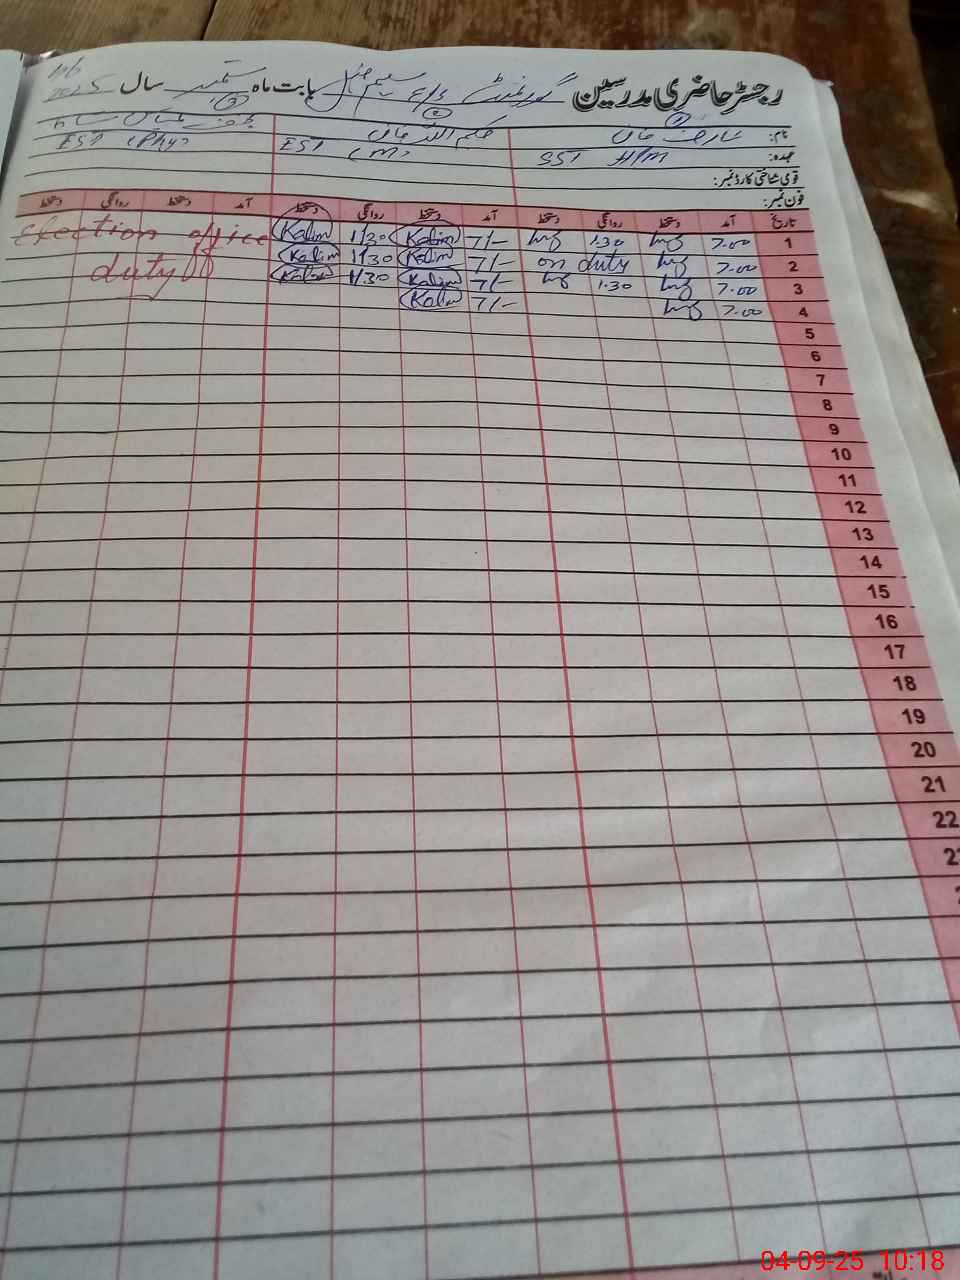 رجسٹر حاضری مدرسین گورنمنٹ E/S بابت ماہ ستمبر سال 2025
نام: عارف خان حکم اللہ خان
عہدہ: SST H/M EST (M) EST (Phy)
قومی شناختی کارڈ نمبر:
فون نمبر:
تاریخ آمد دستخط روانگی دستخط آمد دستخط روانگی دستخط آمد دستخط روانگی دستخط
1 7.00 1.30 7/- Kalim 1/30 Kalim Election office
2 7.00 on duty 7/- Kalim 1/30 Kalim duty
3 7.00 1.30 7/- Kalim 1/30 Kalim
4 7.00 7/- Kalim
5
6
7
8
9
10
11
12
13
14
15
16
17
18
19
20
21
22
04-09-25 10:18